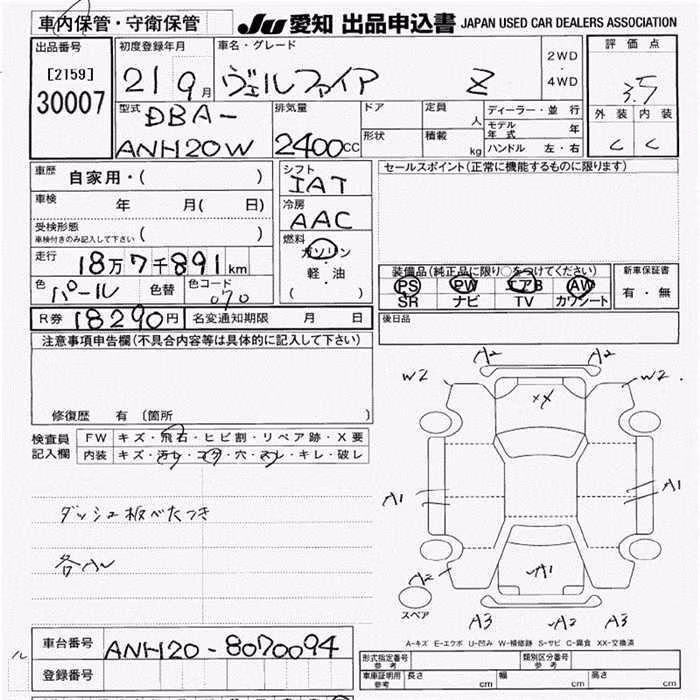 車内保管・守衛保管
JU 愛知 出品申込書 JAPAN USED CAR DEALERS ASSOCIATION
出品番号
[2159]
30007
初度登録年月
21 9月
車名・グレード
ヴェルファイア Z
2WD
・
4WD
評価点
3.5
外装 内装
C C
型式
DBA-
ANH20W
排気量
2400cc
ドア
形状
定員
人
積載
kg
ディーラー・並行
モデル年式 年
ハンドル 左・右
車歴 自家用・( )
車検 年 月( 日)
受検形態
車検付きのみ記入して下さい ( )
走行 18万7千891km
色 パール 色替 色コード 070
R券 18290円 名変通知期限 月 日
シフト
IAT
冷房
AAC
燃料
ガソリン
・
軽・油
( )
セールスポイント(正常に機能するものに限ります)
装備品(純正品に限り○をつけてください)
PS PW エアB AW
SR ナビ TV カワシート
新車保証書
有・無
後日品
注意事項申告欄(不具合内容等は具体的に記入して下さい)
修復歴 有〔箇所 〕
検査員記入欄
FW キズ・飛石・ヒビ割・リペア跡・X要
内装 キズ・汚レ・コゲ・穴・スレ・キレ・破レ
ダッシュ板べたつき
各ハ
A2 A2
W2 W2
XX
A1 A1
A2 A1
スペア
A3 A2 A3
A-キズ E-エクボ U-凹み W-補修跡 S-サビ C-腐食 XX-交換済
車台番号 ANH20-8070094
登録番号
形式指定番号
参考
類別区分番号
参考
車庫証明用
参考
長さ cm 幅 cm 高さ cm